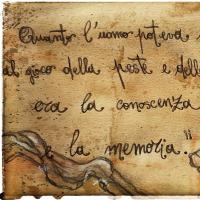 Quanto l'uomo poteva
al gioco della peste e della
era la conoscenza
e la memoria."